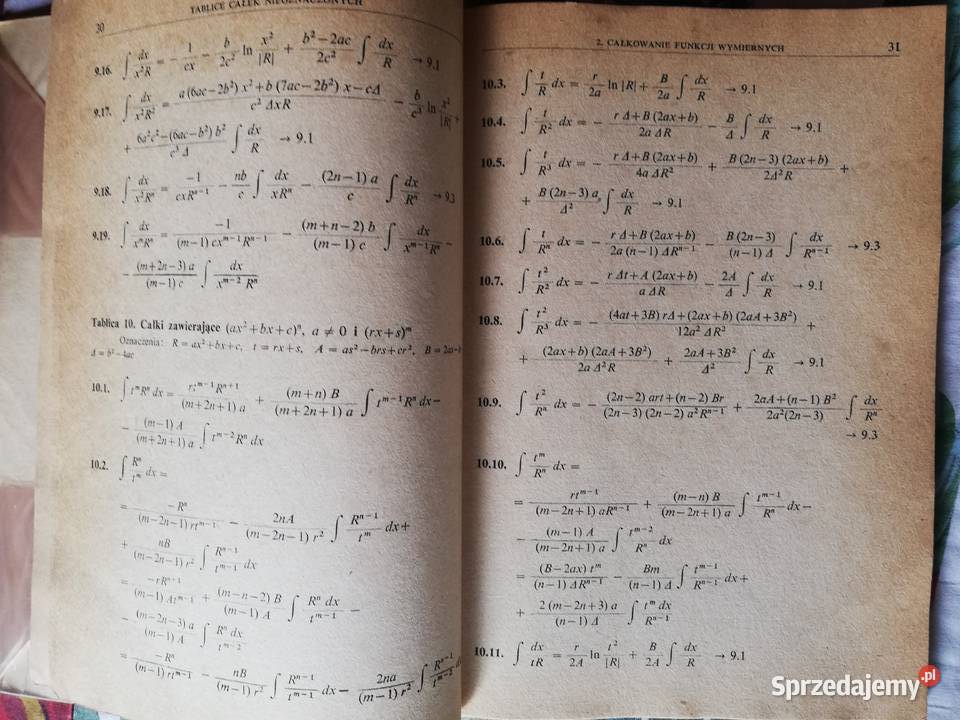 30
TABLICE CAŁEK NIEOZNACZONYCH
9.16. ∫ dx/(x²R) = − 1/(cx) − b/(2c²) ln x²/|R| + (b²−2ac)/(2c²) ∫ dx/R → 9.1
9.17. ∫ dx/(x²R²) = (a(6ac−2b²)x²+b(7ac−2b²)x−cΔ)/(c²ΔxR) − b/c³ ln x²/|R| +
+ (6a²c²−(6ac−b²)b²)/(c³Δ) ∫ dx/R → 9.1
9.18. ∫ dx/(x²Rⁿ) = −1/(cxRⁿ⁻¹) − nb/c ∫ dx/(xRⁿ) − ((2n−1)a)/c ∫ dx/Rⁿ → 9.3
9.19. ∫ dx/(xᵐRⁿ) = −1/((m−1)cxᵐ⁻¹Rⁿ⁻¹) − ((m+n−2)b)/((m−1)c) ∫ dx/(xᵐ⁻¹Rⁿ) −
− ((m+2n−3)a)/((m−1)c) ∫ dx/(xᵐ⁻²Rⁿ)
Tablica 10. Całki zawierające (ax²+bx+c)ⁿ, a ≠ 0 i (rx+s)ᵐ
Oznaczenia: R = ax²+bx+c, t = rx+s, A = as²−brs+cr², B = 2as−b
Δ = b²−4ac
10.1. ∫ tᵐRⁿ dx = rtᵐ⁻¹Rⁿ⁺¹/((m+2n+1)a) + ((m+n)B)/((m+2n+1)a) ∫ tᵐ⁻¹Rⁿ dx−
− ((m−1)A)/((m+2n+1)a) ∫ tᵐ⁻²Rⁿ dx
10.2. ∫ Rⁿ/tᵐ dx =
= −Rⁿ/((m−2n−1)rtᵐ⁻¹) − 2nA/((m−2n−1)r²) ∫ Rⁿ⁻¹/tᵐ dx+
+ nB/((m−2n−1)r²) ∫ Rⁿ⁻¹/tᵐ⁻¹ dx
= −rRⁿ⁺¹/((m−1)Atᵐ⁻¹) + ((m−n−2)B)/((m−1)A) ∫ Rⁿ dx/tᵐ⁻¹ −
− ((m−2n−3)a)/((m−1)A) ∫ Rⁿ dx/tᵐ⁻²
= −Rⁿ/((m−1)rtᵐ⁻¹) − nB/((m−1)r²) ∫ Rⁿ⁻¹/tᵐ⁻¹ dx− 2na/((m−1)r²) ∫ Rⁿ⁻¹/tᵐ⁻²
2. CAŁKOWANIE FUNKCJI WYMIERNYCH
31
10.3. ∫ t/R dx = r/(2a) ln |R| + B/(2a) ∫ dx/R → 9.1
10.4. ∫ t/R² dx = − (rΔ+B(2ax+b))/(2aΔR) − B/Δ ∫ dx/R → 9.1
10.5. ∫ t/R³ dx = − (rΔ+B(2ax+b))/(4aΔR²) + (B(2n−3)(2ax+b))/(2Δ²R) +
+ (B(2n−3)a)/Δ² ∫ dx/R → 9.1
10.6. ∫ t/Rⁿ dx = − (rΔ+B(2ax+b))/(2a(n−1)ΔRⁿ⁻¹) − (B(2n−3))/((n−1)Δ) ∫ dx/Rⁿ⁻¹ → 9.3
10.7. ∫ t²/R² dx = − (rΔt+A(2ax+b))/(aΔR) − 2A/Δ ∫ dx/R → 9.1
10.8. ∫ t²/R³ dx = − ((4at+3B)rΔ+(2ax+b)(2aA+3B²))/(12a²ΔR²) +
+ ((2ax+b)(2aA+3B²))/(2aΔ²R) + (2aA+3B²)/Δ² ∫ dx/R → 9.1
10.9. ∫ t²/Rⁿ dx = − ((2n−2)art+(n−2)Br)/((2n−3)(2n−2)a²Rⁿ⁻¹) + (2aA+(n−1)B²)/(2a²(2n−3)) ∫ dx/Rⁿ
→ 9.3
10.10. ∫ tᵐ/Rⁿ dx =
= rtᵐ⁻¹/((m−2n+1)aRⁿ⁻¹) + ((m−n)B)/((m−2n+1)a) ∫ tᵐ⁻¹/Rⁿ dx−
− ((m−1)A)/((m−2n+1)a) ∫ tᵐ⁻²/Rⁿ dx
= ((B−2ax)tᵐ)/((n−1)ΔRⁿ⁻¹) − Bm/((n−1)Δ) ∫ tᵐ⁻¹/Rⁿ⁻¹ dx+
+ (2(m−2n+3)a)/((n−1)Δ) ∫ tᵐ dx/Rⁿ⁻¹
10.11. ∫ dx/(tR) = r/(2A) ln t²/|R| + B/(2A) ∫ dx/R → 9.1
Sprzedajemy.pl